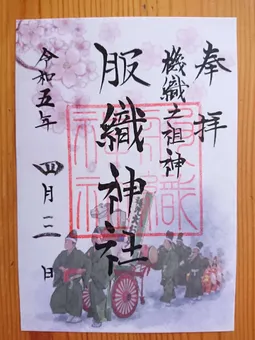 奉拝
機織之祖神
服織神社
令和五年
四月二日